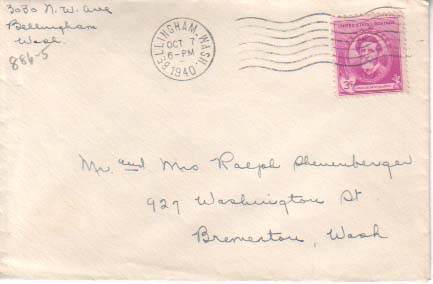 3030 N. W. Ave
Bellingham
Wash.
886-5
BELLINGHAM, WASH.
OCT 7
6-PM
1940
3¢
Mr. and Mrs Ralph Shenenberger
929 Washington St
Bremerton, Wash